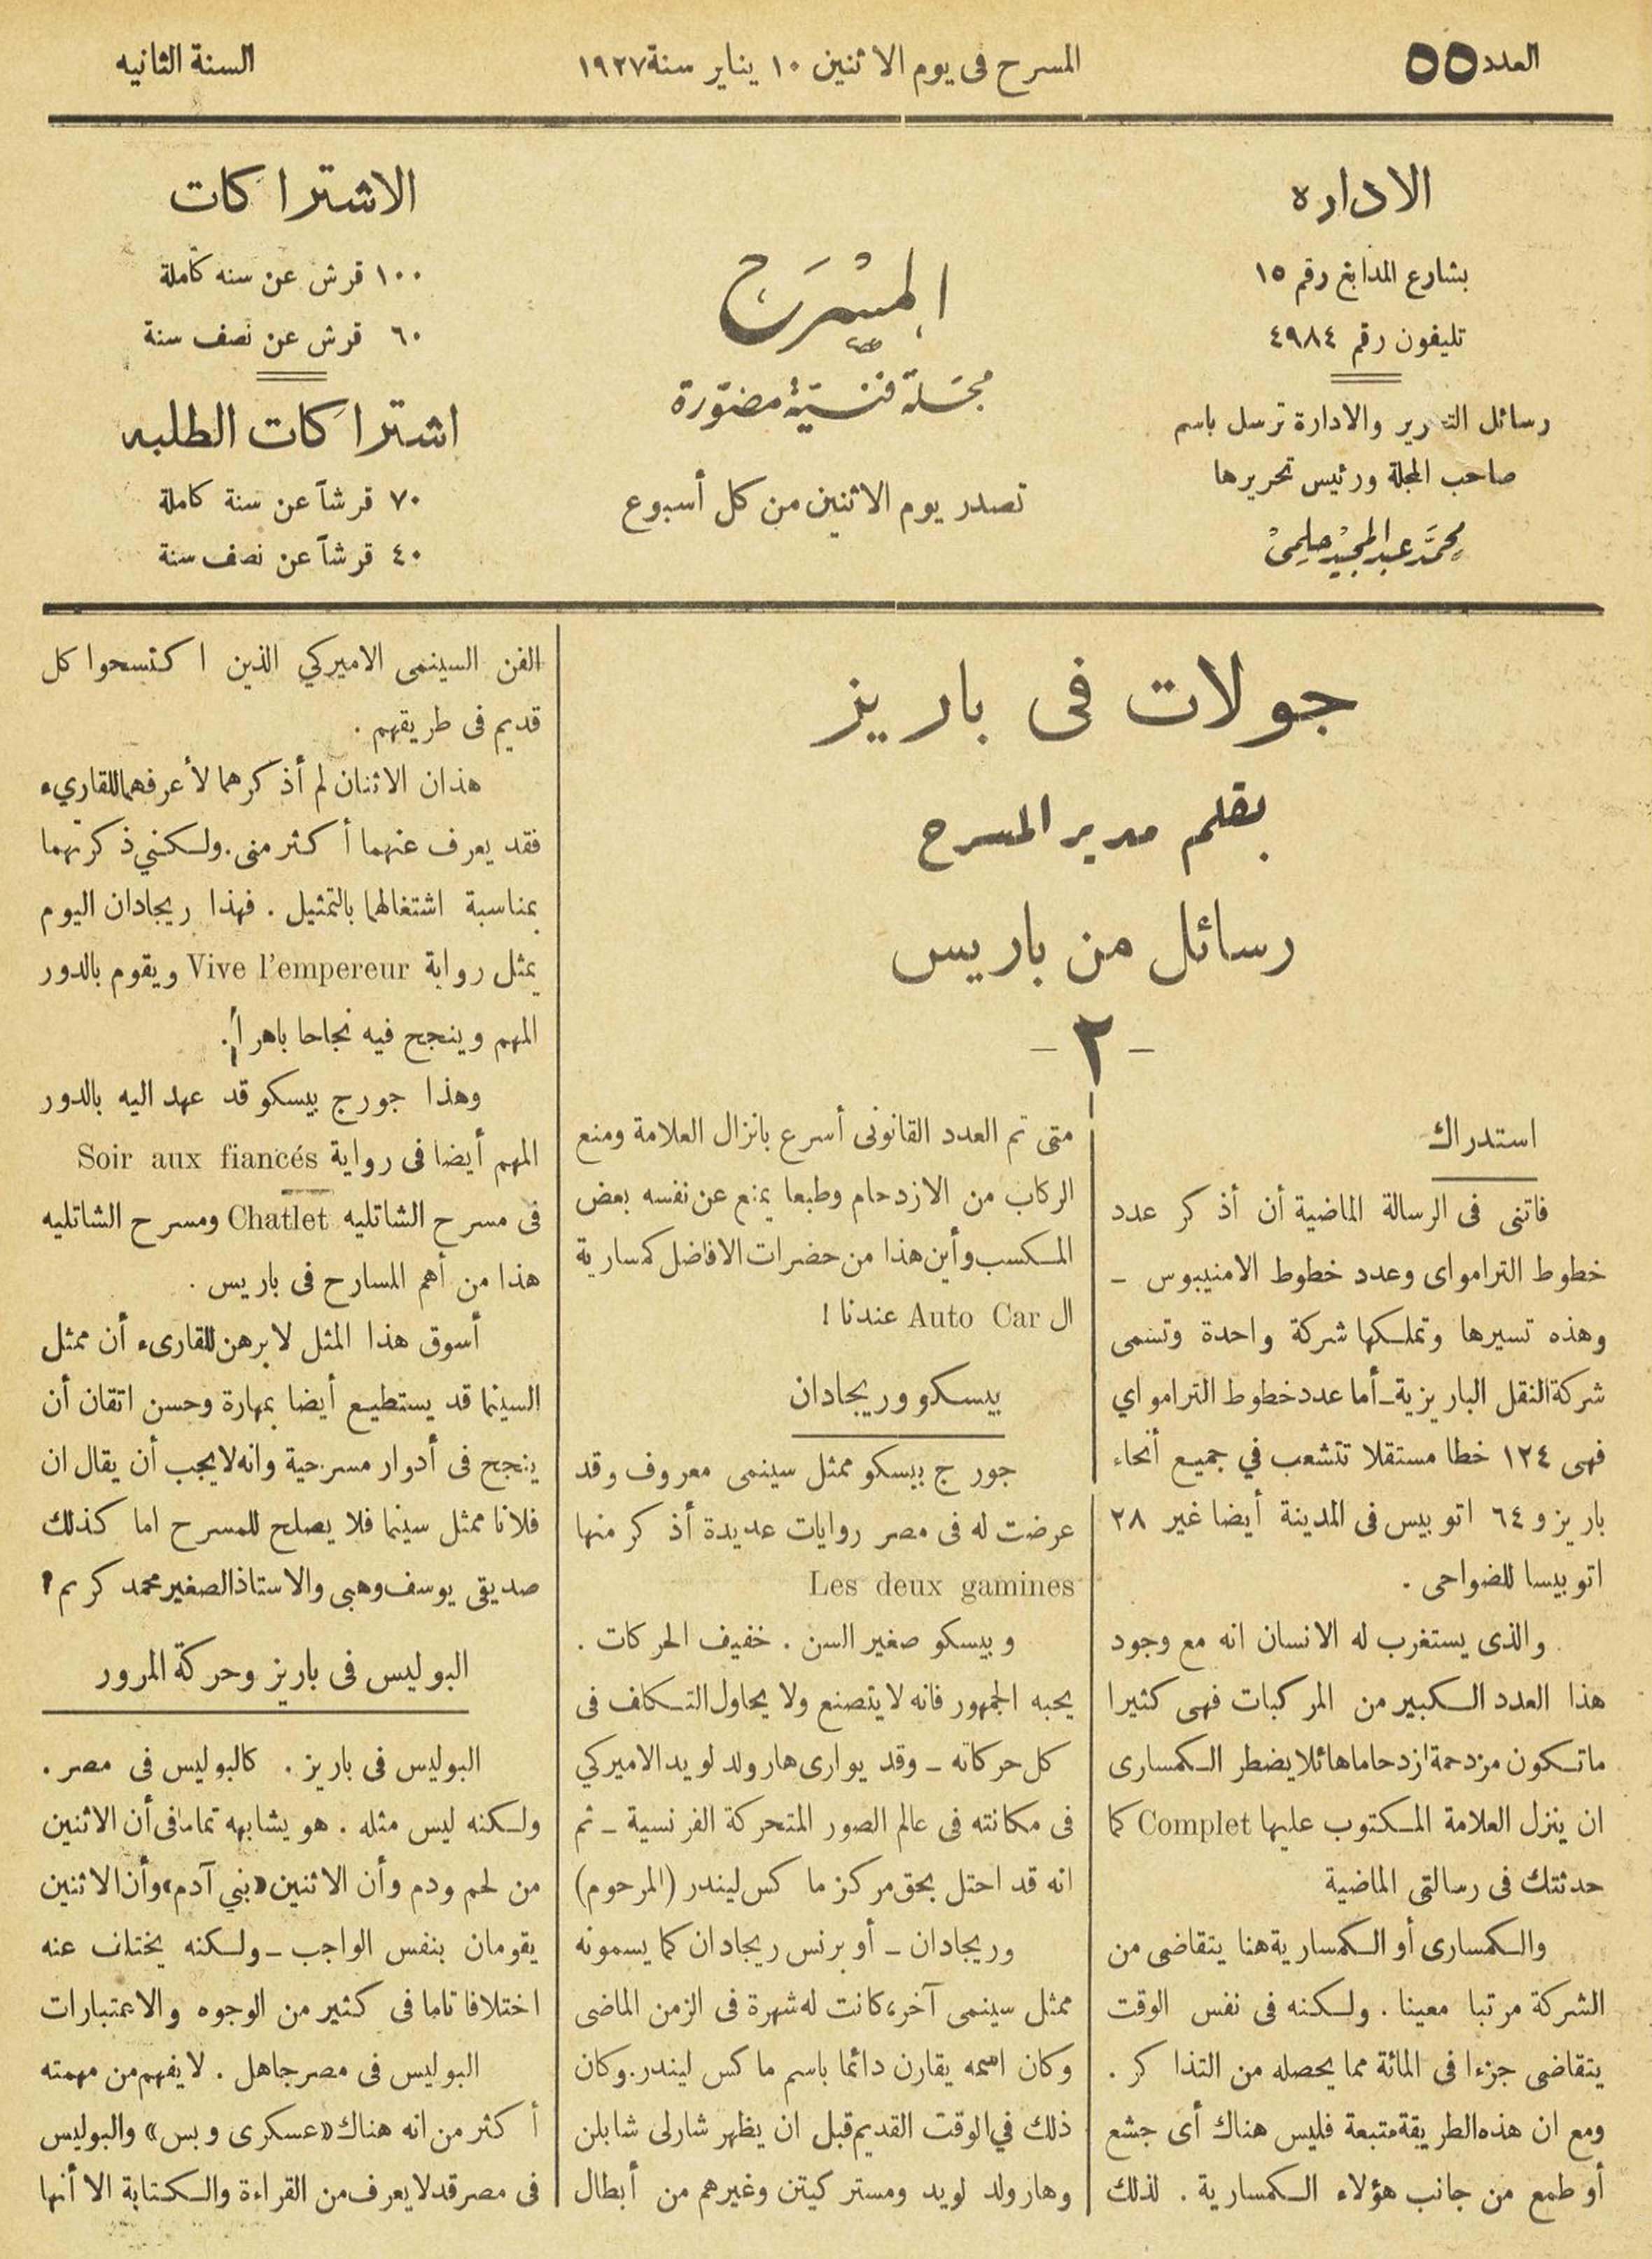 العدد ٥٥
المسرح فى يوم الاثنين ١٠ يناير سنة ١٩٢٧
السنة الثانيه
الاداره
بشارع المدابغ رقم ١٥
تليفون رقم ٤٩٨٤
رسائل التحرير والادارة ترسل باسم
صاحب المجلة ورئيس تحريرها
محمد عبد المجيد حلمى
المسرح
مجلة فنية مصورة
تصدر يوم الاثنين من كل أسبوع
الاشتراكات
١٠٠ قرش عن سنه كاملة
٦٠ قرش عن نصف سنة
اشتراكات الطلبه
٧٠ قرشاً عن سنة كاملة
٤٠ قرشاً عن نصف سنة
جولات فى باريز
بقلم مدير المسرح
رسائل من باريس
- ٢ -
استدراك
فاتنى فى الرسالة الماضية أن أذكر عدد
خطوط الترامواى وعدد خطوط الامنيبوس -
وهذه تسيرها وتملكها شركة واحدة وتسمى
شركة النقل الباريزية - أما عدد خطوط الترامواي
فهى ١٢٤ خطا مستقلا تتشعب في جميع أنحاء
باريز و ٦٤ اتوبيس فى المدينة أيضا غير ٢٨
اتوبيسا للضواحى .
والذى يستغرب له الانسان انه مع وجود
هذا العدد الكبير من المركبات فهى كثيرا
ماتكون مزدحمة ازدحاما هائلا يضطر الكمسارى
ان ينزل العلامة المكتوب عليها Complet كما
حدثتك فى رسالتى الماضية
والكمسارى أو الكمسارية هنا يتقاضى من
الشركة مرتبا معينا . ولكنه فى نفس الوقت
يتقاضى جزءا فى المائة مما يحصله من التذاكر .
ومع ان هذه الطريقة متبعة فليس هناك أى جشع
أو طمع من جانب هؤلاء الكمسارية . لذلك
متى تم العدد القانونى أسرع بانزال العلامة ومنع
الركاب من الازدحام وطبعا يمنع عن نفسه بعض
المكسب وأين هذا من حضرات الافاضل كمسارية
ال Auto Car عندنا !
بيسكو وريجادان
جورج بيسكو ممثل سينمى معروف وقد
عرضت له فى مصر روايات عديدة أذكر منها
Les deux gamines
وبيسكو صغير السن . خفيف الحركات .
يحبه الجمهور فانه لا يتصنع ولا يحاول التكلف فى
كل حركاته - وقد يوارى هارولد لويد الاميركي
فى مكانته فى عالم الصور المتحركة الفرنسية - ثم
انه قد احتل بحق مركز ماكس ليندر (المرحوم)
وريجادان - أو برنس ريجادان كما يسمونه
ممثل سينمى آخر، كانت له شهرة فى الزمن الماضى
وكان اسمه يقارن دائما باسم ماكس ليندر. وكان
ذلك في الوقت القديم قبل ان يظهر شارلى شابلن
وهارولد لويد ومستر كيتن وغيرهم من أبطال
الفن السينمى الاميركي الذين اكتسحوا كل
قديم فى طريقهم .
هذان الاثنان لم أذكرهما لأعرفهما للقاريء
فقد يعرف عنهما أكثر منى. ولكنني ذكرتهما
بمناسبة اشتغالهما بالتمثيل . فهذا ريجادان اليوم
يمثل رواية Vive l'empereur ويقوم بالدور
المهم وينجح فيه نجاحا باهرا.
وهذا جورج بيسكو قد عهد اليه بالدور
المهم أيضا فى رواية Soir aux fiancés
فى مسرح الشاتليه Chatlet ومسرح الشاتليه
هذا من أهم المسارح فى باريس .
أسوق هذا المثل لابرهن للقارىء أن ممثل
السينما قد يستطيع أيضا بمهارة وحسن اتقان أن
ينجح فى أدوار مسرحية وانه لا يجب أن يقال ان
فلانا ممثل سينما فلا يصلح للمسرح اما كذلك
صديقى يوسف وهبى والاستاذ الصغير محمد كريم ؟
البوليس فى باريز وحركة المرور
البوليس فى باريز . كالبوليس فى مصر .
ولكنه ليس مثله . هو يشابهه تماما فى أن الاثنين
من لحم ودم وأن الاثنين «بني آدم» وأن الاثنين
يقومان بنفس الواجب - ولكنه يختلف عنه
اختلافا تاما فى كثير من الوجوه والاعتبارات
البوليس فى مصر جاهل . لا يفهم من مهمته
أكثر من انه هناك «عسكرى وبس» والبوليس
فى مصر قد لا يعرف من القراءة والكتابة الا أنها